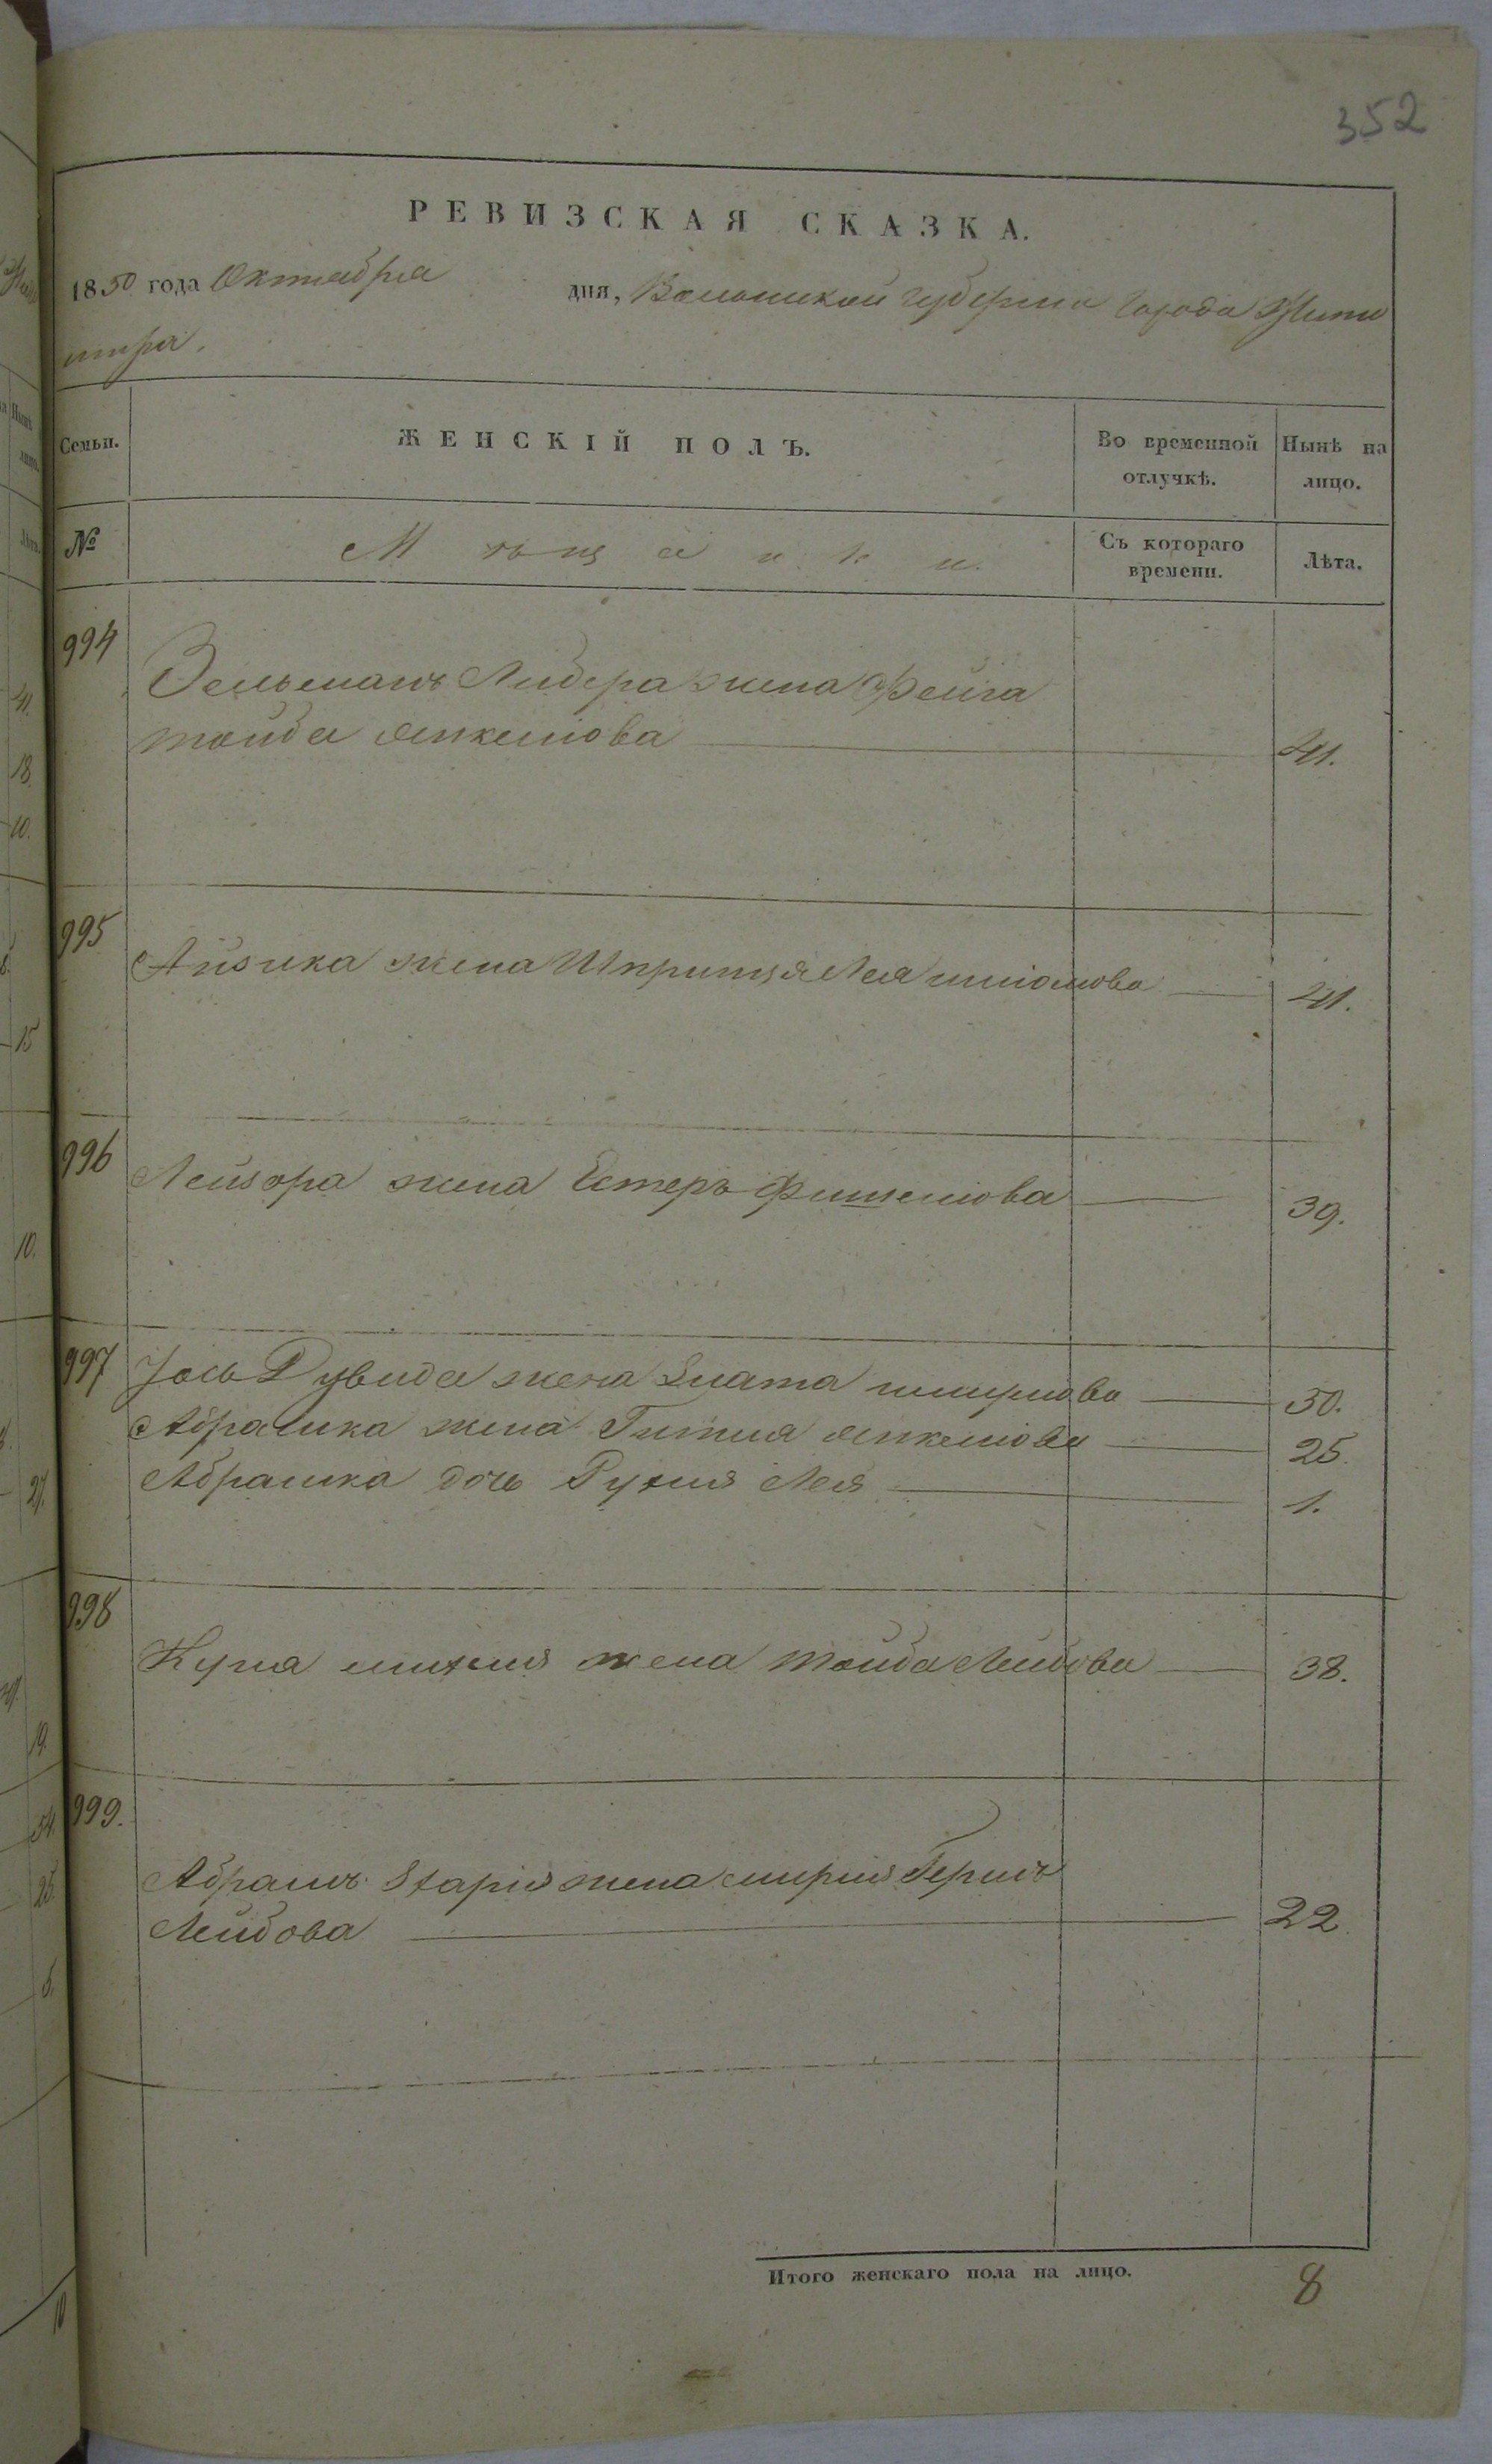 352
РЕВИЗСКАЯ СКАЗКА.
1850 года Октября дня, Волынской губернии Города Жито
мира.
Семьи. ЖЕНСКІЙ ПОЛЪ. Во временной отлучкѣ. Нынѣ на лицо.
№ Мѣщанки. Съ котораго времени. Лѣта.
994
Зельманъ Лейбера жена Фейга
тойба Янкелiова 41.
995
Айзика жена Шпринця Лея шлiомова 41.
996
Лейзора жена Естеръ Фишелiова 39.
997 Іось Дувида жена Злата шмулiова 50.
Абрамка жена Гитля Янкелiова 25.
Абрамка дочь Рухля Лея 1.
998
жена тойба Лейбова 38.
999.
Абрамъ жена Герш
Лейбова 22.
Итого женскаго пола на лицо. 8